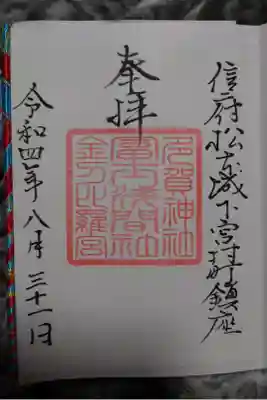 信府松本城下宮村鎮座
奉拝
多賀神社
富士浅間社
金刀比羅宮
令和四年八月三十一日